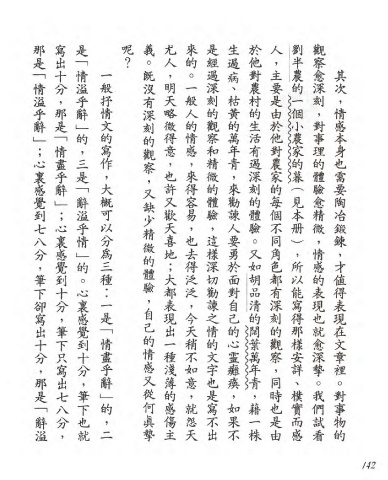 其次，情感本身也需要陶冶鍛鍊，才值得表現在文章裡。對事物的
觀察愈深刻，對事理的體驗愈精微，情感的表現也就愈深摯。我們試看
劉半農的一個小農家的暮（見本册），所以能寫得那樣安詳、樸實而感
人，主要是由於他對農家的每個不同角色都有深刻的觀察，同時也是由
於他對農村的生活有過深刻的體驗。又如胡品清的闊葉萬年青，藉一株
生過病、枯黃的萬年青，來勸諫人要勇於面對自己的心靈癱瘓，如果不
是經過深刻的觀察和精微的體驗，這樣深切勸諫之情的文字也是寫不出
來的。一般人的情感，來得容易，也去得泛泛，今天稍不如意，就怨天
尤人，明天略微得意，也許又歡天喜地；大都表現出一種淺薄的感傷主
義。既沒有深刻的觀察，又缺少精微的體驗，自己的情感又從何真摯
呢？
一般抒情文的寫作，大概可以分為三種：一是「情盡乎辭」的，二
是「情溢乎辭」的，三是「辭溢乎情」的。心裏感覺到十分，筆下也就
寫出十分，那是「情盡乎辭」；心裏感覺到十分，筆下只寫出七八分，
那是「情溢乎辭」；心裏感覺到七八分，筆下卻寫出十分，那是「辭溢
142